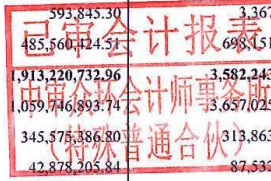 593,845.30 3,36
已审会计报表
485,560,424.51 698,151
1,913,220,732.96 3,582,24
中审众环会计师事务所
1,059,746,893.74 3,657,02
345,575,386.80 313,863
（特殊普通合伙）
42,878,205.84 87,53